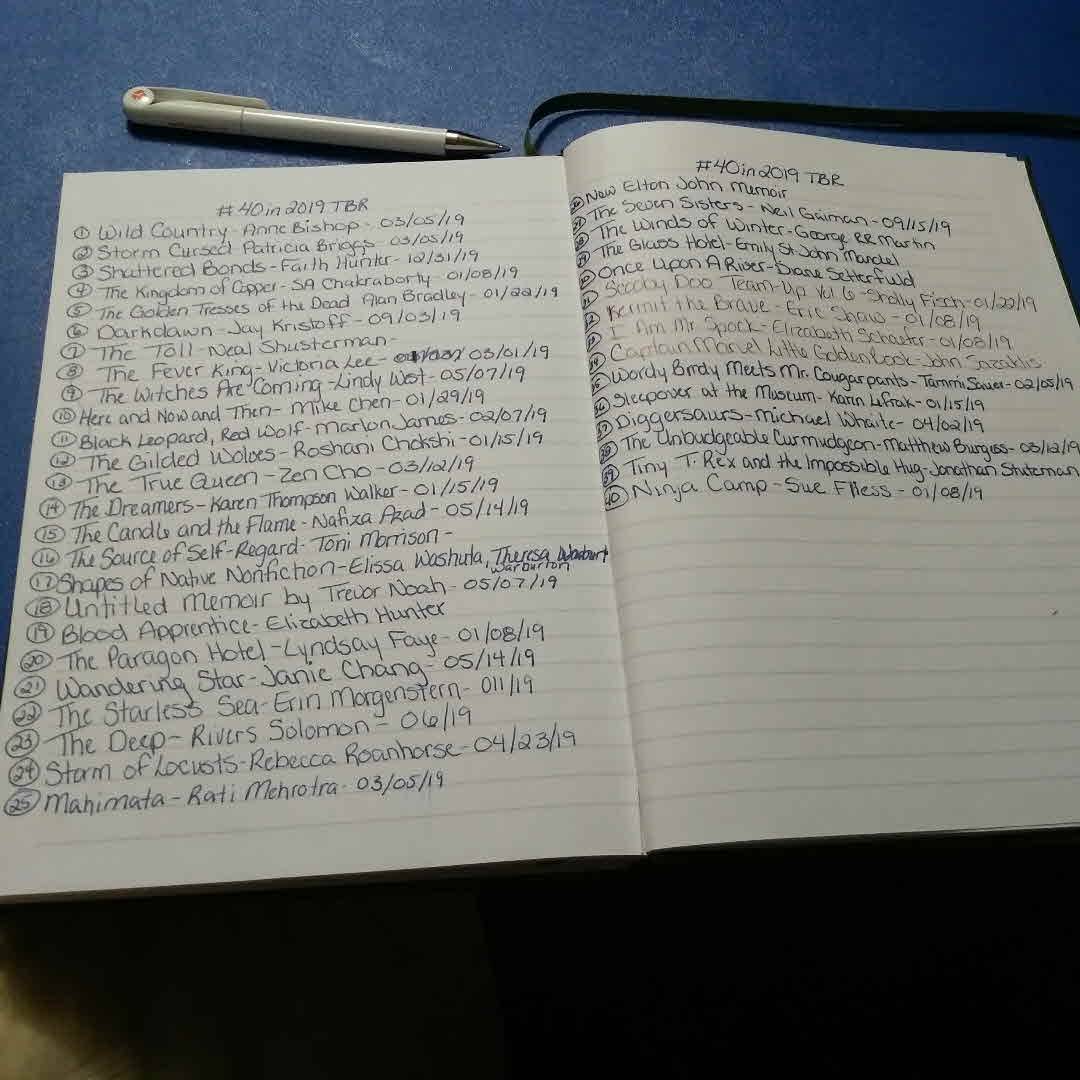 #40in2019 TBR
① Wild Country - Anne Bishop - 03/05/19
② Storm Cursed Patricia Briggs - 03/05/19
③ Shattered Bonds - Faith Hunter - 12/31/19
④ The Kingdom of Copper - SA Chakraborty - 01/08/19
⑤ The Golden Tresses of the Dead Alan Bradley - 01/22/19
⑥ Darkdawn - Jay Kristoff - 09/03/19
⑦ The Toll - Neal Shusterman -
⑧ The Fever King - Victoria Lee - 03/01/19
⑨ The Witches Are Coming - Lindy West - 05/07/19
⑩ Here and Now and Then - Mike Chen - 01/29/19
⑪ Black Leopard, Red Wolf - Marlon James - 02/07/19
⑫ The Gilded Wolves - Roshani Chokshi - 01/15/19
⑬ The True Queen - Zen Cho - 03/12/19
⑭ The Dreamers - Karen Thompson Walker - 01/15/19
⑮ The Candle and the Flame - Nafiza Azad - 05/14/19
⑯ The Source of Self-Regard - Toni Morrison -
⑰ Shapes of Native Nonfiction - Elissa Washuta, Theresa Warburton
⑱ Untitled Memoir by Trevor Noah - 05/07/19
⑲ Blood Apprentice - Elizabeth Hunter
⑳ The Paragon Hotel - Lyndsay Faye - 01/08/19
㉑ Wandering Star - Janie Chang - 05/14/19
㉒ The Starless Sea - Erin Morgenstern - 011/19
㉓ The Deep - Rivers Solomon - 06/19
㉔ Storm of Locusts - Rebecca Roanhorse - 04/23/19
㉕ Mahimata - Rati Mehrotra - 03/05/19
#40in2019 TBR
New Elton John Memoir
The Seven Sisters - Neil Gaiman - 09/15/19
The Winds of Winter - George RR Martin
The Glass Hotel - Emily St. John Mandel
Once Upon A River - Diane Setterfield
Scooby Doo Team-Up Vol 6 - Sholly Fisch - 01/29/19
Kermit the Brave - Eric Shaw - 01/08/19
I Am Mr. Spock - Elizabeth Schaefer - 01/08/19
Captain Marvel Little Golden Book - John Sazaklis
Wordy Birdy Meets Mr. Cougarpants - Tammi Sauer - 02/05/19
Sleepover at the Museum - Karen LeFrak - 01/15/19
Diggersaurs - Michael Whaite - 04/02/19
The Unbudgeable Curmudgeon - Matthew Burgess - 03/12/19
㊴ Tiny T. Rex and the Impossible Hug - Jonathan Stutzman
㊵ Ninja Camp - Sue Fliess - 01/08/19